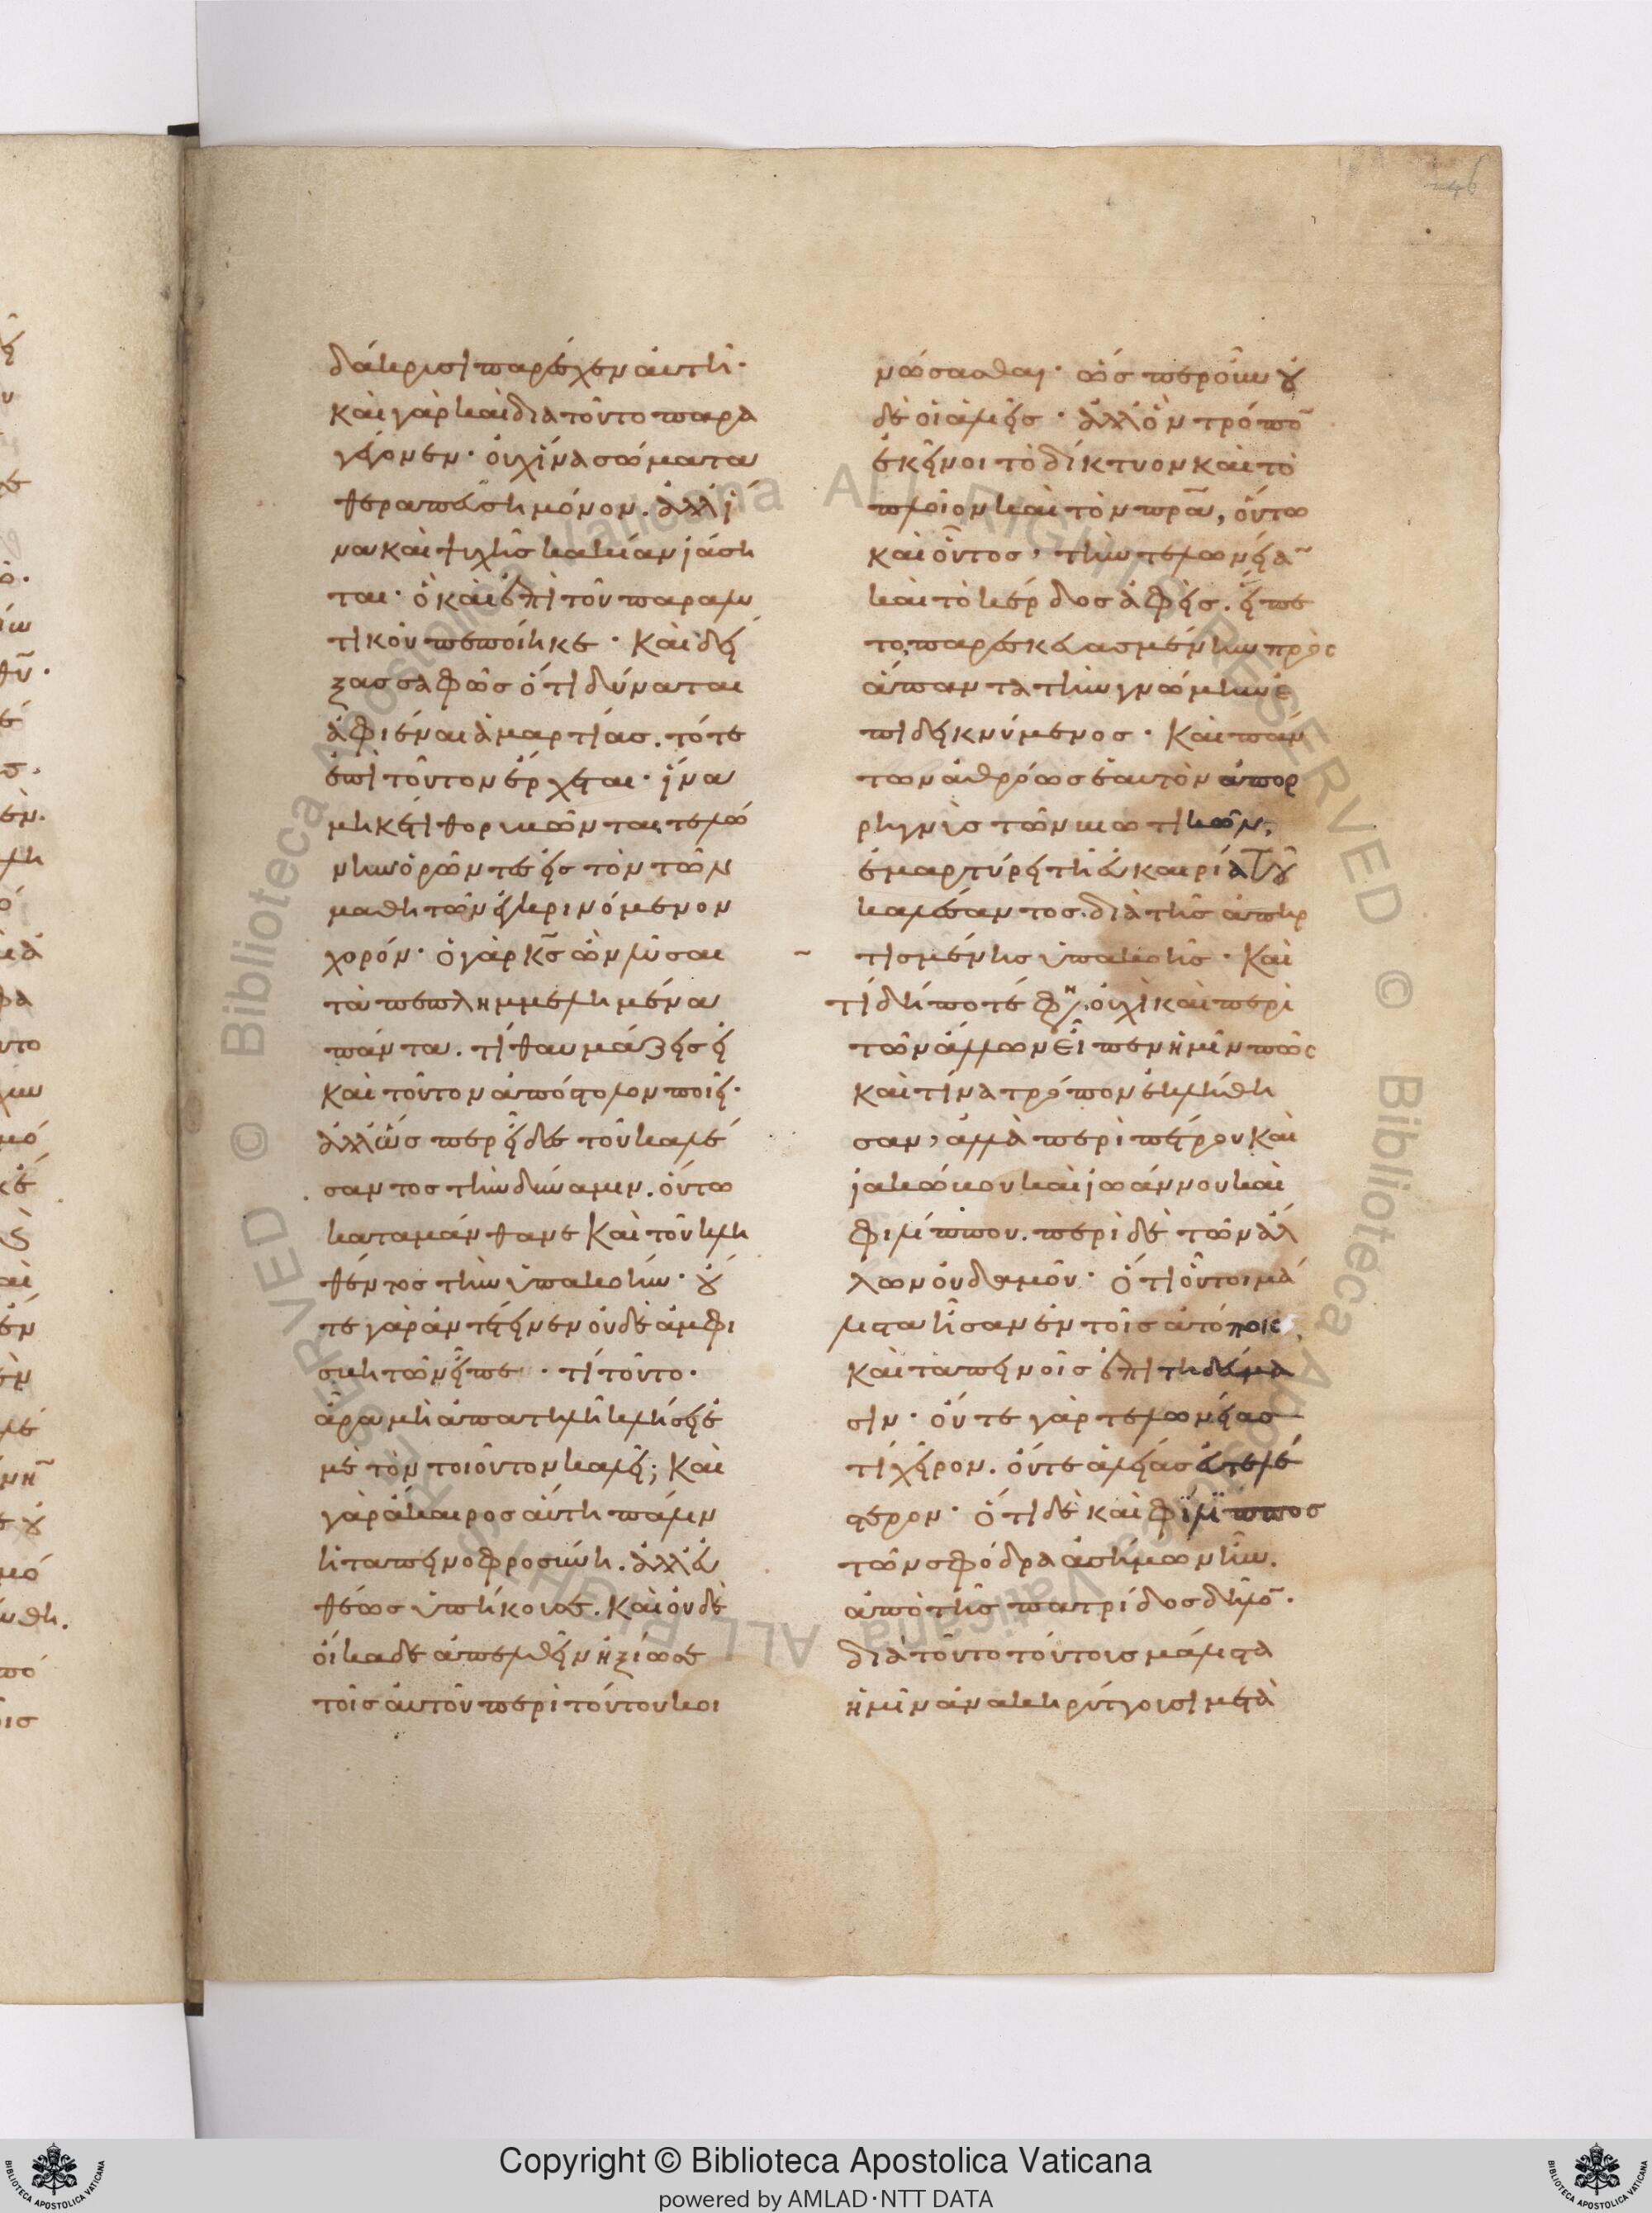 46
δάκρισι παρέχεν αὐτῆ·
καὶ γὰρ καὶ διατοῦτο παρα
γέγονεν· οὐχ ἵνα σώματα
θεραπεύση μόνον. ἀλλ ἵ
να καὶ ψυχῆς κακίαν ϊάση
ται· ὃ καὶ ἐπὶ τοῦ παραλυ
τικοῦ πεποίηκε· Καὶ δεί
ξας σαφῶς ὅτι δύναται
ἀφιέναι ἁμαρτίας. τότε
ἐπὶ τοῦτον ἔρχεται· ἵνα
μηκέτι θορυβῶνται τελώ
νην ὁρῶντες εἰς τὸν τῶν
μαθητῶν ἐγκρινόμενον
χορόν· ὁ γὰρ κς ὢν λῦσαι
τὰ πεπλημμελημένα
πάντα. τί θαυμάζεις εἰ
καὶ τοῦτον ἀπόστολον ποιεῖ·
ἀλλ ὥσπερ εἶδες τοῦ καλέ
σαντος τὴν δύναμιν. οὕτω
καταμάνθανε καὶ τοῦ κλη
θέντος τὴν ὑπακοήν· οὔ
τε γὰρ ἀντέτεινεν οὐδὲ ἀμφι
σβητῶν εἶπε· τί τοῦτο·
ἆρα μὴ ἀπατηλῆ κλήσει ἐ
μὲ τὸν τοιοῦτον καλεῖ; καὶ
γὰρ ἄκαιρος αὕτη πάλιν
ἡ ταπεινοφροσύνη. ἀλλ εὐ
θέως ὑπήκουσε. καὶ οὐδὲ
οἴκαδε ἀπελθεῖν ἠξίωσε
τοῖς αὐτοῦ περὶ τούτου κοι
νώσασθαι· ὥσπερ οὖν οὐ
δὲ οἱ ἁλιεῖς· ἀλλ ὃν τρόπο
ἐκεῖνοι τὸ δίκτυον καὶ τὸ
πλοῖον καὶ τὸν πρα, οὕτω
καὶ οὗτος, τὴν τελωνεία
καὶ τὸ κέρδος ἀφεὶς. εἵπε
το, παρεσκευασμένην πρὸς
ἅπαντα τὴν γνώμην ἐ
πιδεικνύμενος· Καὶ πάν
των ἀθρόως ἑαυτὸν ἀπορ
ρηγνὺς τῶν βιωτικῶν,
ἐμαρτύρει τῆ εὐκαιρία τοῦ
καλέσαντος. διὰ τῆς ἀπηρ
τισμένης ὑπακοῆς· Καὶ
τί δήποτέ φη. οὐχὶ καὶ περὶ
τῶν ἄλλων εἶπεν ἡμῖν πῶς
καὶ τίνα τρόπον ἐκλήθη
σαν, ἀλλὰ περὶ πέτρου καὶ
ϊακώβου καὶ ϊωάννου καὶ
φιλίππου. περὶ δὲ τῶν ἄλ
λων οὐδαμοῦ· Ὅτι οὗτοι μά
λιστα ἦσαν ἐν τοῖς ἀτόποις
καὶ ταπεινοῖς ἐπιτηδεύμα
σιν· οὔτε γὰρ τελωνείας
τί χεῖρον. οὔτε ἁλιείας εὐτελέ
στερον· Ὅτι δὲ καὶ φίλιππος
τῶν σφόδρα ἀσήμων ἦν.
ἀπὸ τῆς πατρίδος δῆλο·
διὰ τοῦτο τούτους μάλιστα
ἡμῖν ἀνακηρύττουσι μετὰ
Copyright © Biblioteca Apostolica Vaticana
powered by AMLAD·NTT DATA